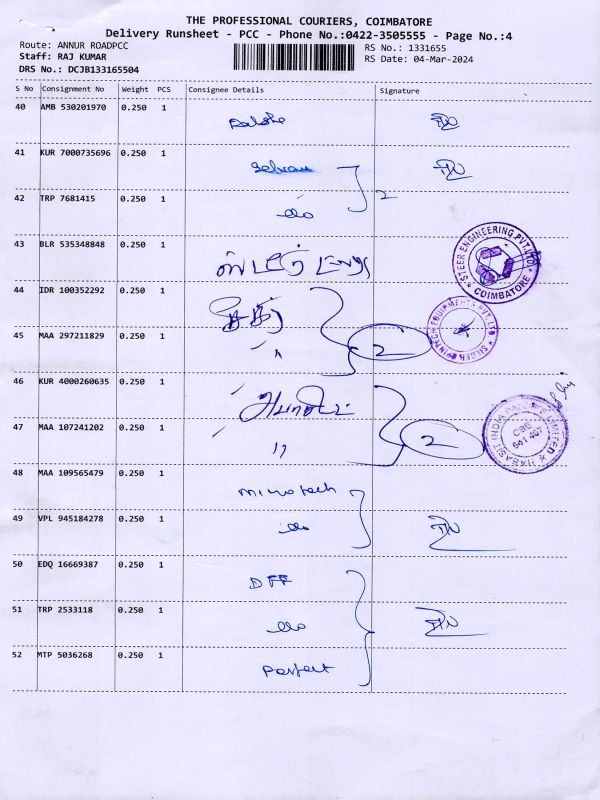 THE PROFESSIONAL COURIERS, COIMBATORE
Delivery Runsheet - PCC - Phone No.:0422-3505555 - Page No.:4
Route: ANNUR ROADPCC
RS No.: 1331655
Staff: RAJ KUMAR
RS Date: 04-Mar-2024
DRS No.: DCJB133165504
S No Consignment No Weight PCS Consignee Details Signature
40 AMB 530201970 0.250 1
41 KUR 7000735696 0.250 1
42 TRP 7681415 0.250 1 2
43 BLR 535348848 0.250 1
STEER ENGINEERING PVT.LTD. COIMBATORE
44 IDR 100352292 0.250 1
45 MAA 297211829 0.250 1 " 2
46 KUR 4000260635 0.250 1
47 MAA 107241202 0.250 1 " 2
HABASIT INDIA PRIVATE LIMITED
CBE
641 407
48 MAA 109565479 0.250 1 microtech
49 VPL 945184278 0.250 1 do
50 EDQ 16669387 0.250 1 DFF
51 TRP 2533118 0.250 1 do
52 MTP 5036268 0.250 1 Perfect